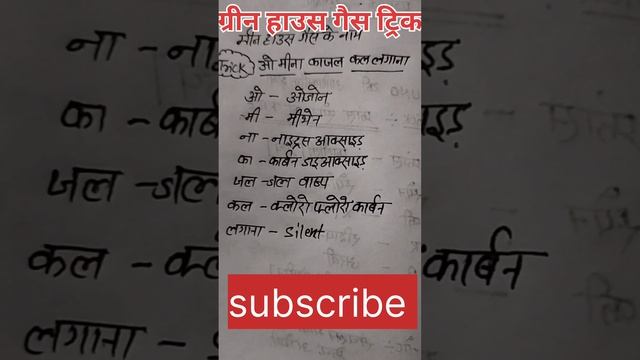 ग्रीन हाउस गैस ट्रिक
ग्रीन हाउस गैस के नाम
Trick ओ मीना काजल कल लगाना
ओ - ओजोन
मी - मीथेन
ना - नाइट्रस आक्साइड
का - कार्बन डाइआक्साइड
जल - जल वाष्प
कल - क्लोरो फ्लोरो कार्बन
लगाना - silent
subscribe